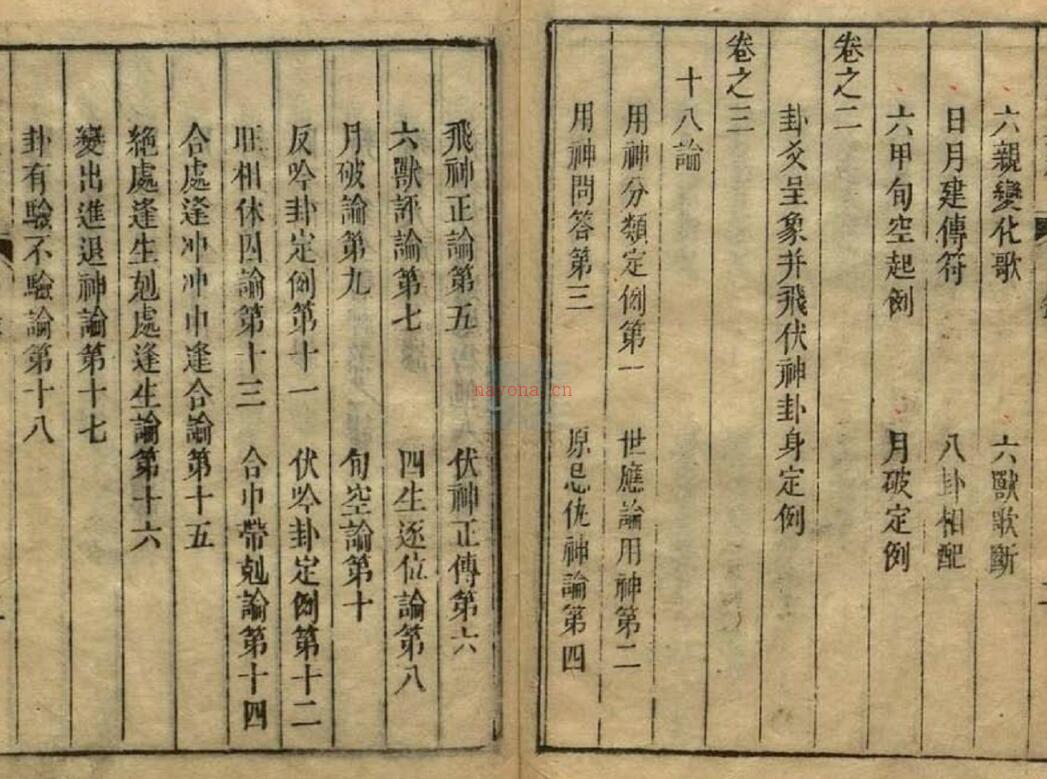 六親變化歌　六獸歌斷
日月建傳符　八卦相配
六甲旬空起例　月破定例
卷之二
卦爻呈象并飛伏神卦身定例
卷之三
十八論
用神分類定例第一　世應論用神第二
用神問答第三　原忌仇神論第四
飛神正論第五　伏神正傳第六
六獸評論第七　四生逐位論第八
月破論第九　旬空論第十
反吟卦定例第十一　伏吟卦定例第十二
旺相休囚論第十三　合中帶剋論第十四
合處逢冲冲中逢合論第十五
絶處逢生剋處逢生論第十六
變出進退神論第十七
卦有驗不驗論第十八
nayona.cn